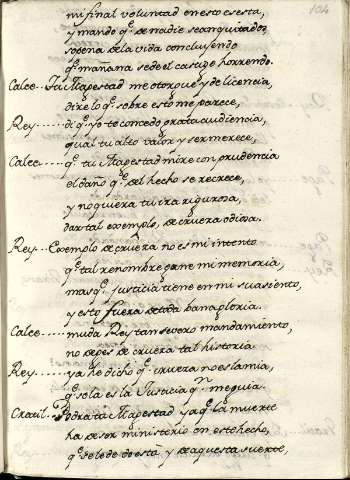 104
mi final voluntad en esto es esta,
y mando q̃ de nadie sea quitado
so pena de la vida concluyendo
q̃ mañana se de el castigo horrendo.
Calce - Tu Magestad me otorgue y de licencia,
dire lo q̃ sobre esto me parece,
Rey ----- di q̃ yo te concedo grata audiencia,
qual tu alto valor y ser merece,
Calce ---- q̃ tu Magestad mire con prudencia
el daño q̃ del hecho se recrece,
y no quiera tu ira rigurosa,
dar tal exemplo, de crueza odiosa.
Rey -- Exemplo de crueza no es mi intento
q̃ tal renombre gane mi memoria,
mas q̃ justicia tiene en mi su asiento,
y esto fuera de toda bana gloria.
Calce ------ muda Rey tan severo mandamiento,
no dexes de crueza tal historia
Rey ------ ya he dicho q̃ crueza no es la mia,
q̃ sola es la Justicia q̃ me guia.
Cratil - Podra tu Magestad ya q̃ la muerte
ha de ser ministerio en este hecho,
q̃ se le de desta y de aquesta suerte,